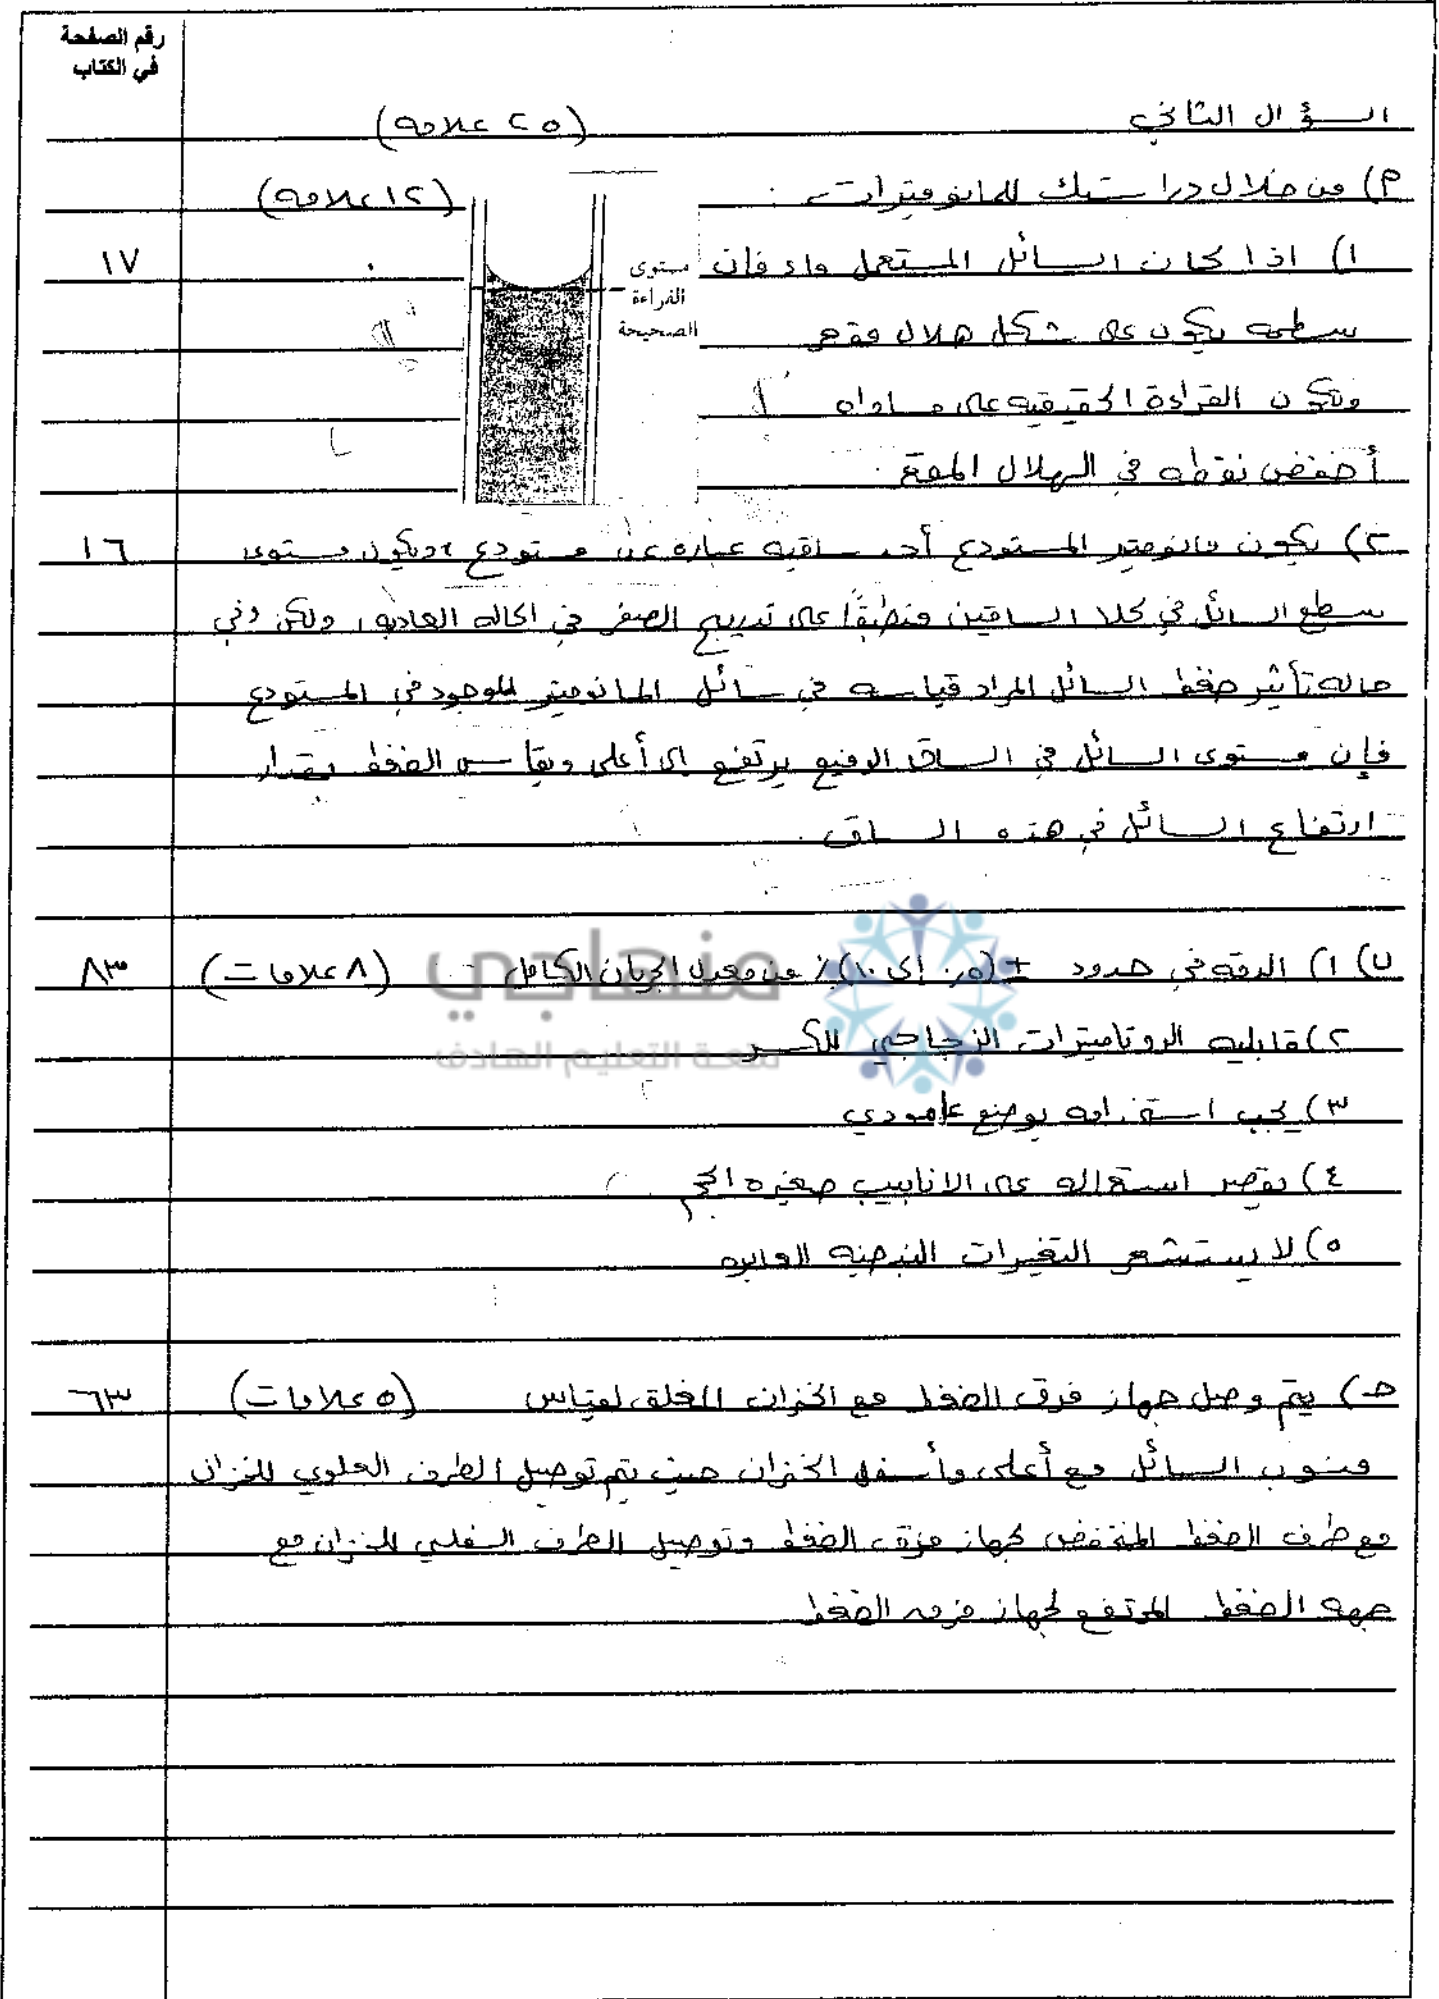 رقم الصفحة
في الكتاب
السؤال الثاني (٢٥ علامة)
أ) من خلال دراستك للمانومترات : (١٢ علامة)
١) اذا كان السائل المستعمل ماء فإن ١٧
سطحه يكون على شكل هلال مقعر
وتكون القراءة الحقيقية على مساواة
أخفض نقطة في الهلال المقعر .
مستوى
القراءة
الصحيحة
٢) يكون مانومتر المستودع أحد ساقيه عبارة عن مستودع ويكون مستوى ١٦
سطح السائل في كلا الساقين منطبقاً على تدريج الصفر في الحالة العادية، ولكن وفي
حالة تأثير ضغط السائل المراد قياسه في سائل المانومتر الموجود في المستودع
فإن مستوى السائل في الساق الرفيع يرتفع الى أعلى ويقاس الضغط بمقدار
ارتفاع السائل في هذه الساق .
ب) ١) الدقة في حدود ± (٠,٥ إلى ١٠)٪ من معدل الجريان الكامل (٨ علامات) ٨٣
٢) قابلية الروتاميترات الزجاجي للكسر
٣) يجب استخدامه بوضع عامودي
٤) يقتصر استعماله على الانابيب صغيرة الحجم
٥) لا يستشعر التغيرات النبضية العابرة
منهاجي
متعة التعليم الهادف
جـ) يتم وصل جهاز فرق الضغط مع الخزان المغلق لقياس (٥ علامات) ٦٣
منسوب السائل مع أعلى وأسفل الخزان حيث يتم توصيل الطرف العلوي للخزان
مع طرف الضغط المنخفض لجهاز فرق الضغط وتوصيل الطرف السفلي للخزان مع
جهة الضغط المرتفع لجهاز فرق الضغط